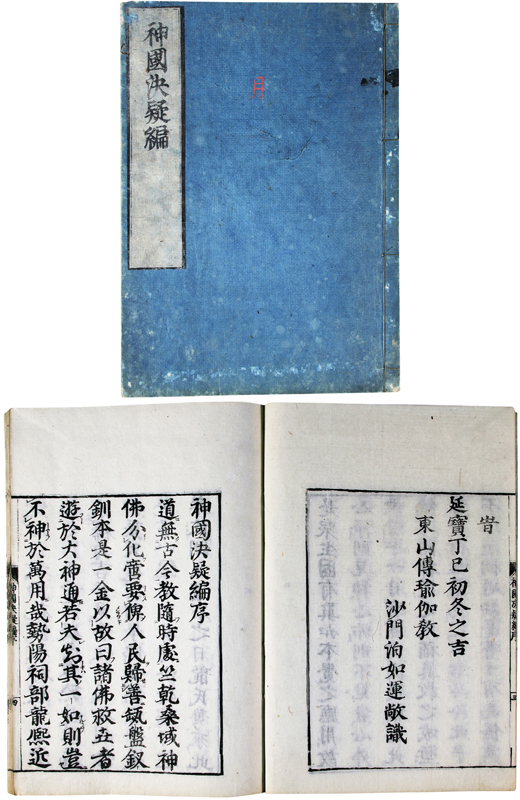 神國決疑編
旹
延寶丁巳初冬之吉
東山傳瑜伽教
沙門泊如運敞識
神國決疑編序
道無古今教隨時處竺乾桑域神
佛分化啻要俾人民歸善瓶盤釵
釧本是一金以故曰諸佛救世者
遊於大神通若夫其一如則豈
不神於萬用哉勢陽祠部龍凞近